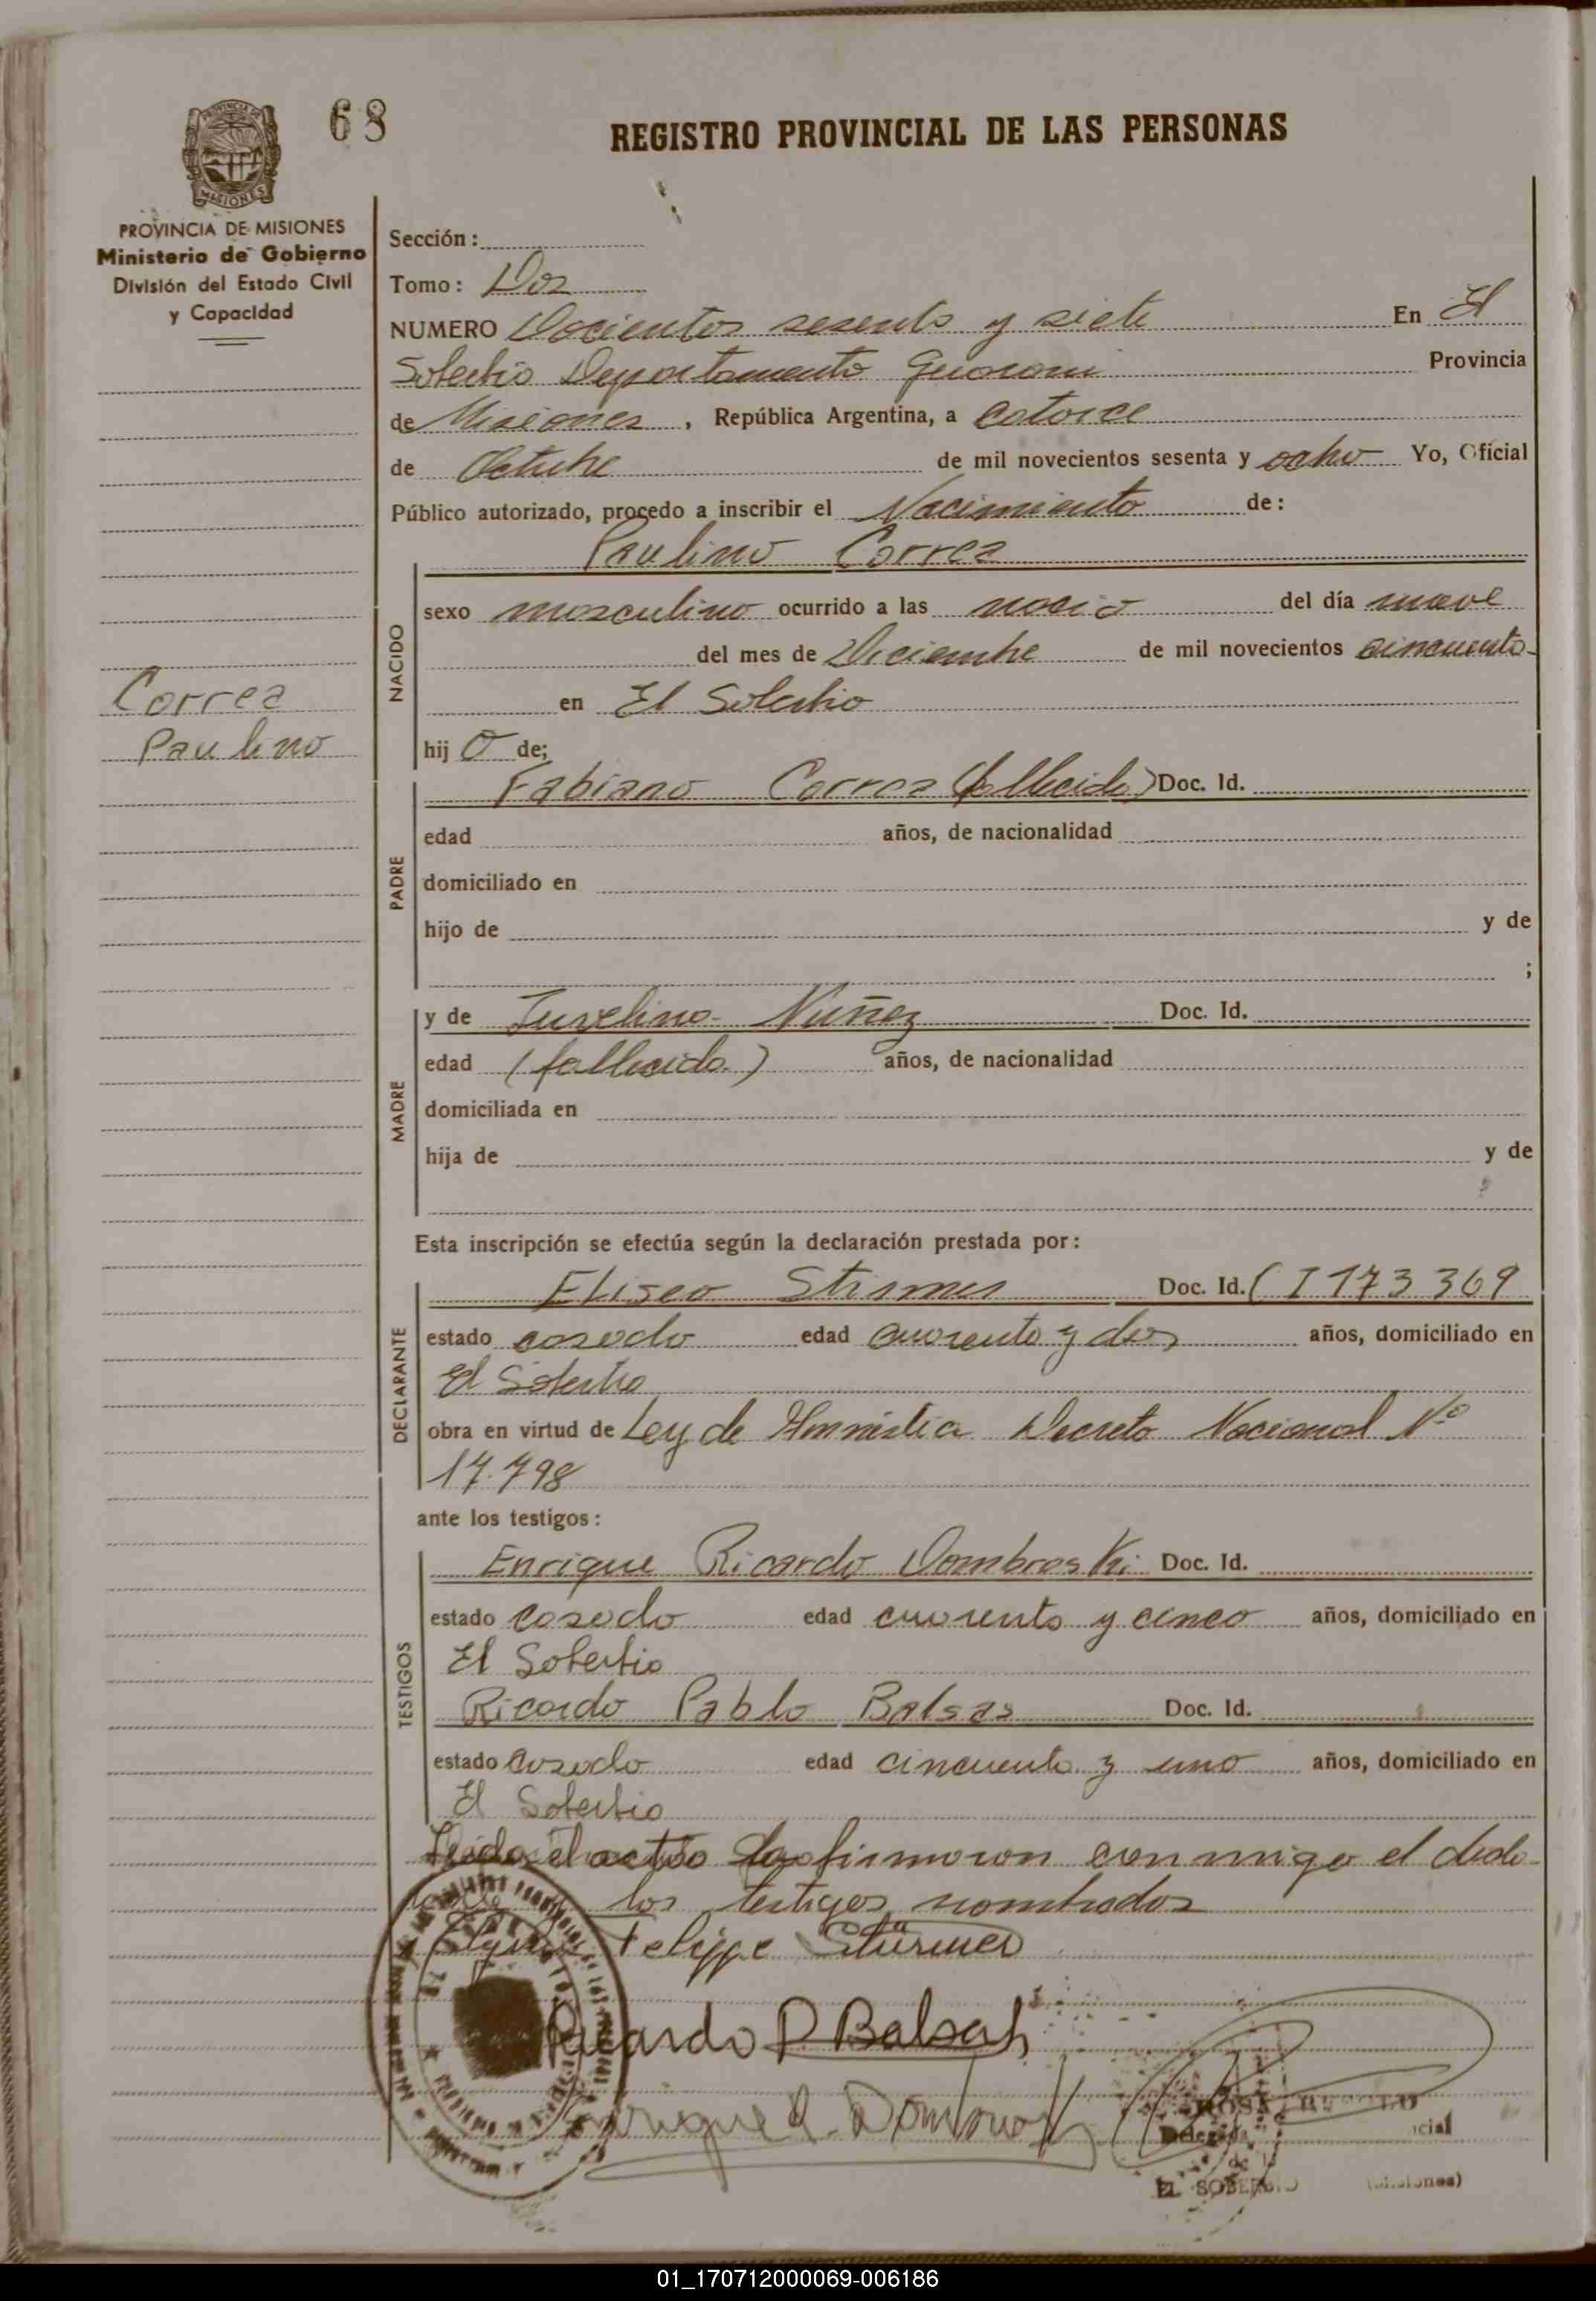 68
REGISTRO PROVINCIAL DE LAS PERSONAS
PROVINCIA DE MISIONES
Ministerio de Gobierno
División del Estado Civil
y Capacidad
Sección:
Tomo: Dos
NUMERO Docientos sesenta y siete En El
Soberbio Departamento Guarani Provincia
de Misiones, República Argentina, a catorce
de Octubre de mil novecientos sesenta y ocho Yo, Oficial
Público autorizado, procedo a inscribir el Nacimiento de:
Paulino Correa
NACIDO
sexo masculino ocurrido a las nació del día nueve
del mes de Diciembre de mil novecientos cincuenta-
en El Soberbio
hij o de;
Correa
Paulino
PADRE
Fabiano Correa (fallecido) Doc. Id.
edad años, de nacionalidad
domiciliado en
hijo de y de
;
MADRE
y de Juvelina Nuñez Doc. Id.
edad (fallecida) años, de nacionalidad
domiciliada en
hija de y de
Esta inscripción se efectúa según la declaración prestada por:
DECLARANTE
Eliseo Doc. Id. C I 173 369
estado casado edad cuarenta y dos años, domiciliado en
El Soberbio
obra en virtud de Ley de Amnistia Decreto Nacional Nº
17.798
ante los testigos:
TESTIGOS
Enrique Ricardo Dombroski Doc. Id.
estado casado edad cuarenta y cinco años, domiciliado en
El Soberbio
Ricardo Pablo Balsas Doc. Id.
estado casado edad cincuenta y uno años, domiciliado en
El Soberbio
Leida el acta la firmaron conmigo el decla-
los testigos nombrados
Felippe Stürmer
Ricardo P. Balsas
Enrique R.
EL SOBERBIO (Misiones)
01_170712000069-006186